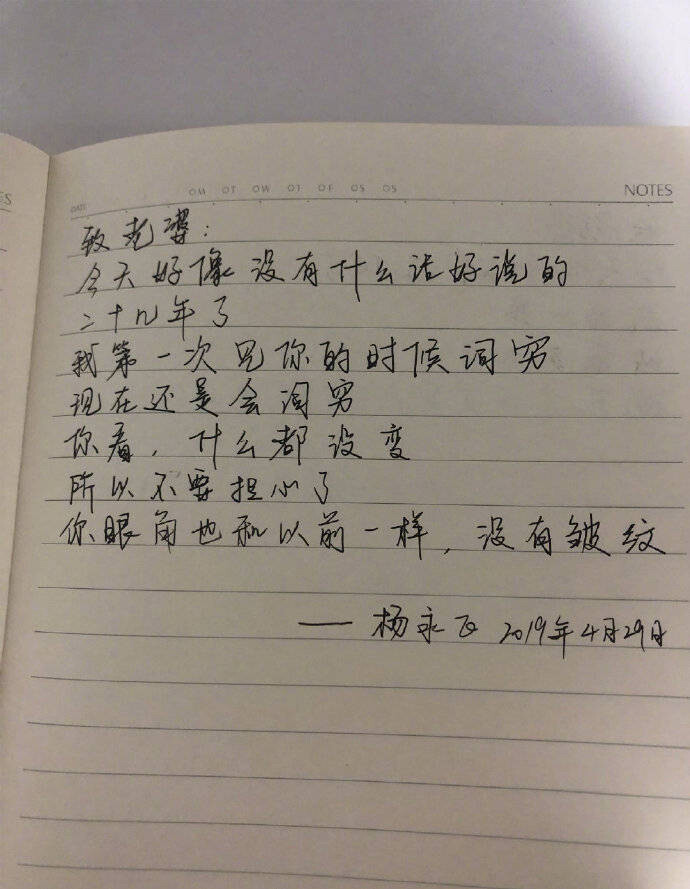 NOTES
DATE MO TO WO TO FO SO SO
致老婆：
今天好像没有什么话好说的
二十九年了
我第一次见你的时候词穷
现在还是会词穷
你看，什么都没变
所以不要担心了
你眼角也和以前一样，没有皱纹
——杨永正 2019年4月29日